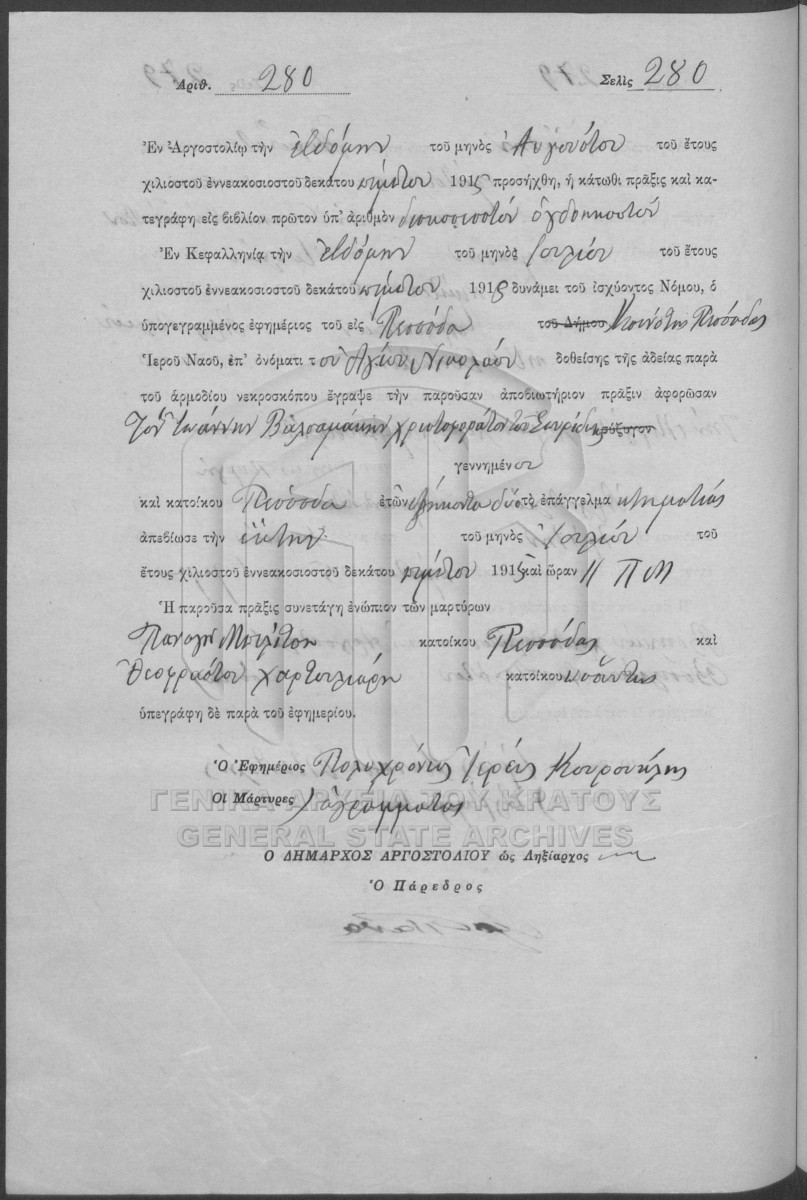 Αριθ. 280 Σελὶς 280
Ἐν Ἀργοστολίῳ τὴν ἑβδόμην τοῦ μηνὸς Αὐγούστου τοῦ ἔτους
χιλιοστοῦ ἐννεακοσιοστοῦ δεκάτου πέμπτου 1915 προσήχθη, ἡ κάτωθι πρᾶξις καὶ κα-
τεγράφη εἰς βιβλίον πρῶτον ὑπ' ἀριθμὸν διακοσιοστόν ὀγδοηκοστόν
Ἐν Κεφαλληνίᾳ τὴν ἑβδόμην τοῦ μηνὸς Ἰουλίου τοῦ ἔτους
χιλιοστοῦ ἐννεακοσιοστοῦ δεκάτου πέμπτου 1915 δυνάμει τοῦ ἰσχύοντος Νόμου, ὁ
ὑπογεγραμμένος ἐφημέριος τοῦ εἰς Πεσσάδα τοῦ Δήμου Κοινότης Πεσσάδας
Ἱεροῦ Ναοῦ, ἐπ' ὀνόματι τοῦ Ἁγίου Νικολάου δοθείσης τῆς ἀδείας παρὰ
τοῦ ἁρμοδίου νεκροσκόπου ἔγραψε τὴν παροῦσαν ἀποβιωτήριον πρᾶξιν ἀφορῶσαν
Τόν Ἰωάννην Βαλσαμάκην χριστοφοράτον τοῦ Σπυρίδ. σύζυγον
γεννημένον
καὶ κατοίκου Πεσσάδα ἐτῶν ἑξήκοντα δύο τὸ ἐπάγγελμα κτηματίας
ἀπεβίωσε τὴν ἕκτην τοῦ μηνὸς Ἰουλίου τοῦ
ἔτους χιλιοστοῦ ἐννεακοσιοστοῦ δεκάτου πέμπτου 1915 καὶ ὥραν 11 Π Μ
Ἡ παροῦσα πρᾶξις συνετάγη ἐνώπιον τῶν μαρτύρων
Παναγῆ κατοίκου Πεσσάδας καὶ
Θεοφράστου χαρτουλιάρη κατοίκου
ὑπεγράφη δὲ παρὰ τοῦ ἐφημερίου.
Ὁ Ἐφημέριος Πολυχρόνιος Ἱερεύς Κουρούκλης
Οἱ Μάρτυρες ἀγράμματοι
ΓΕΝΙΚΑ ΑΡΧΕΙΑ ΤΟΥ ΚΡΑΤΟΥΣ
GENERAL STATE ARCHIVES
Ο ΔΗΜΑΡΧΟΣ ΑΡΓΟΣΤΟΛΙΟΥ ὡς Ληξίαρχος
Ὁ Πάρεδρος